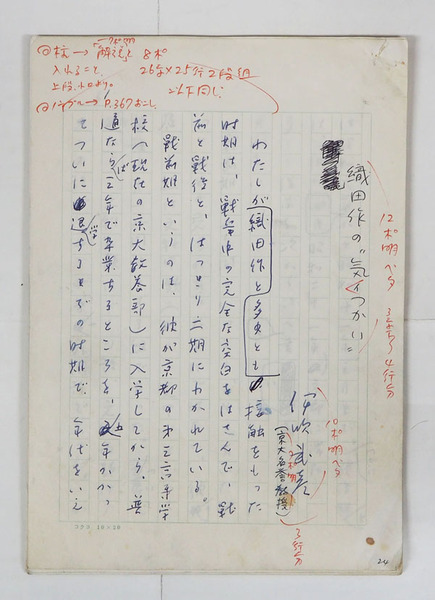 ◎柱→「解説」
8ポ
入れること
26字×25行2段組
以下同じ
◎ノンブル→P.367おこし
織田作の〝気づかい〟
12ポ明 ベタ
4行分
伊吹武彦
(京大名誉教授)
10ポ明 ベタ
3行分
わたしが織田作と多少とも接触をもった
時期は、戦争中の完全な空白をはさんで、戦
前と戦後と、はっきり二期にわかれている。
戦前期というのは、彼が京都の第三高等学
校(現在の京大教養部)に入学してから、普
通ならば三年で卒業するところを、五年かかっ
てついに退学するまでの時期で、年代をいえ
コクヨ 10×20
24